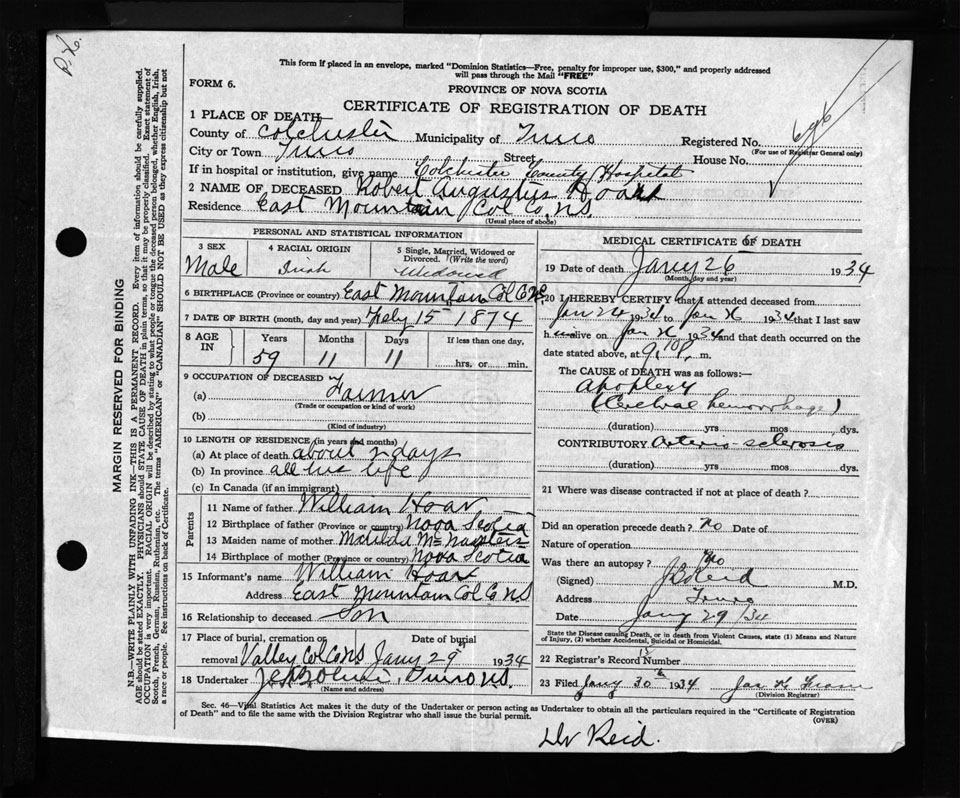 P.L.
This form if placed in an envelope, marked "Dominion Statistics—Free, penalty for improper use, $300," and properly addressed
will pass through the Mail "FREE"
FORM 6.
PROVINCE OF NOVA SCOTIA
CERTIFICATE OF REGISTRATION OF DEATH
1 PLACE OF DEATH
County of Colchester Municipality of Truro Registered No. 696
(For use of Registrar General only)
City or Town Truro Street House No.
If in hospital or institution, give name Colchester County Hospital
2 NAME OF DECEASED Robert Augustus Hoar
Residence East Mountain Col Co, N.S.
(Usual place of abode)
PERSONAL AND STATISTICAL INFORMATION
3 SEX 4 RACIAL ORIGIN 5 Single, Married, Widowed or
Divorced. (Write the word)
Male Irish Widowed
6 BIRTHPLACE (Province or country) East Mountain Col Co N.S.
7 DATE OF BIRTH (month, day and year) Feby 15 1874
8 AGE IN Years Months Days If less than one day,
59 11 11 hrs. or min.
9 OCCUPATION OF DECEASED
(a) Farmer
(Trade or occupation or kind of work)
(b)
(Kind of industry)
10 LENGTH OF RESIDENCE (in years and months)
(a) At place of death about 2 days
(b) In province all his life
(c) In Canada (if an immigrant)
Parents
11 Name of father William Hoar
12 Birthplace of father (Province or country) Nova Scotia
13 Maiden name of mother Matilda
14 Birthplace of mother (Province or country) Nova Scotia
15 Informant's name William Hoar
Address East Mountain Col Co N S
16 Relationship to deceased Son
17 Place of burial, cremation or Date of burial
removal Valley Col Co NS Jany 29 1934
18 Undertaker Truro N.S.
(Name and address)
MEDICAL CERTIFICATE OF DEATH
19 Date of death Jany 26 1934
(Month, day and year)
20 I HEREBY CERTIFY that I attended deceased from
Jan 24 1934 to Jan 26 1934 that I last saw
h im alive on Jan 26 1934 and that death occurred on the
date stated above, at m.
The CAUSE of DEATH was as follows:—
apoplexy
(Cerebral hemorrhage)
(duration) yrs mos dys.
CONTRIBUTORY Arterio-sclerosis
(duration) yrs mos dys.
21 Where was disease contracted if not at place of death?
Did an operation precede death? no Date of
Nature of operation
Was there an autopsy? No
(Signed) Reid M.D.
Address Truro
Date Jany 29/34
State the Disease causing Death, or in death from Violent Causes, state (1) Means and Nature
of Injury, (2) whether Accidental, Suicidal or Homicidal.
22 Registrar's Record Number
23 Filed Jany 30th 1934 Jas K
(Division Registrar)
Sec. 46—Vital Statistics Act makes it the duty of the Undertaker or person acting as Undertaker to obtain all the particulars required in the "Certificate of Registration
of Death" and to file the same with the Division Registrar who shall issue the burial permit.
(OVER)
Dr Reid.
MARGIN RESERVED FOR BINDING
N.B.—WRITE PLAINLY WITH UNFADING INK—THIS IS A PERMANENT RECORD. Every item of information should be carefully supplied.
AGE should be stated EXACTLY. PHYSICIANS should STATE CAUSE OF DEATH in plain terms, so that it may be properly classified. Exact statement of
OCCUPATION is very important. RACIAL ORIGIN will be described by stating to what people or tongue the deceased person belonged, whether English, Irish,
Scotch, French, German, Russian, Ruthenian, etc. The terms "AMERICAN" or "CANADIAN" SHOULD NOT BE USED as they express citizenship but not
a race or people. See instructions on back of Certificate.